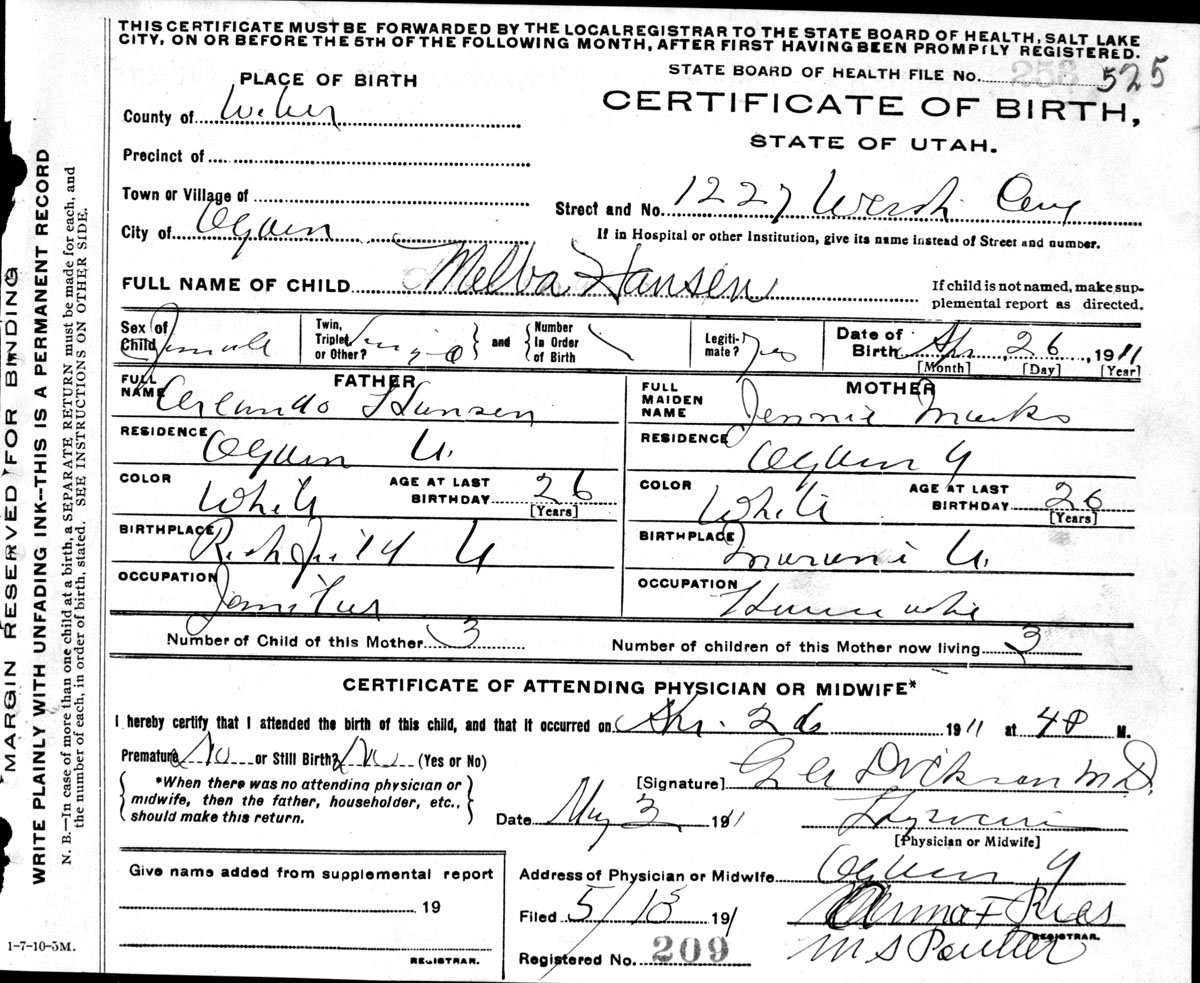 THIS CERTIFICATE MUST BE FORWARDED BY THE LOCAL REGISTRAR TO THE STATE BOARD OF HEALTH, SALT LAKE
CITY, ON OR BEFORE THE 5TH OF THE FOLLOWING MONTH, AFTER FIRST HAVING BEEN PROMPTLY REGISTERED.
STATE BOARD OF HEALTH FILE NO. 525
PLACE OF BIRTH
CERTIFICATE OF BIRTH,
STATE OF UTAH.
County of Weber
Precinct of
Town or Village of
Street and No. 1227 Wash Ave
City of Ogden
If in Hospital or other Institution, give its name instead of Street and number.
FULL NAME OF CHILD Melba Hansen
If child is not named, make sup-
plemental report as directed.
Sex of Child Female
Twin, Triplet, or Other? Single and Number In Order of Birth
Legiti-mate? Yes
Date of Birth Apr 26, 1911
[Month] [Day] [Year]
FATHER
FULL NAME Orlando Hansen
RESIDENCE Ogden U.
COLOR White AGE AT LAST BIRTHDAY 26
[Years]
BIRTHPLACE Richfield U
OCCUPATION Janitor
MOTHER
FULL MAIDEN NAME Jennie Marks
RESIDENCE Ogden U
COLOR White AGE AT LAST BIRTHDAY 26
[Years]
BIRTHPLACE Moroni U.
OCCUPATION Housewife
Number of Child of this Mother 3
Number of children of this Mother now living 3
CERTIFICATE OF ATTENDING PHYSICIAN OR MIDWIFE*
I hereby certify that I attended the birth of this child, and that it occurred on Apr. 26 1911 at 4 P M.
Premature No or Still Birth? No (Yes or No)
*When there was no attending physician or
midwife, then the father, householder, etc.,
should make this return.
[Signature] Dickson M.D.
Date May 3 1911
[Physician or Midwife]
Give name added from supplemental report
19
REGISTRAR.
Address of Physician or Midwife Ogden U
Filed 5/18 1911
REGISTRAR.
Registered No. 209
M S Poulter
MARGIN RESERVED FOR BINDING
WRITE PLAINLY WITH UNFADING INK--THIS IS A PERMANENT RECORD
N. B.—In case of more than one child at a birth, a SEPARATE RETURN must be made for each, and
the number of each, in order of birth, stated. SEE INSTRUCTIONS ON OTHER SIDE.
1-7-10-5M.